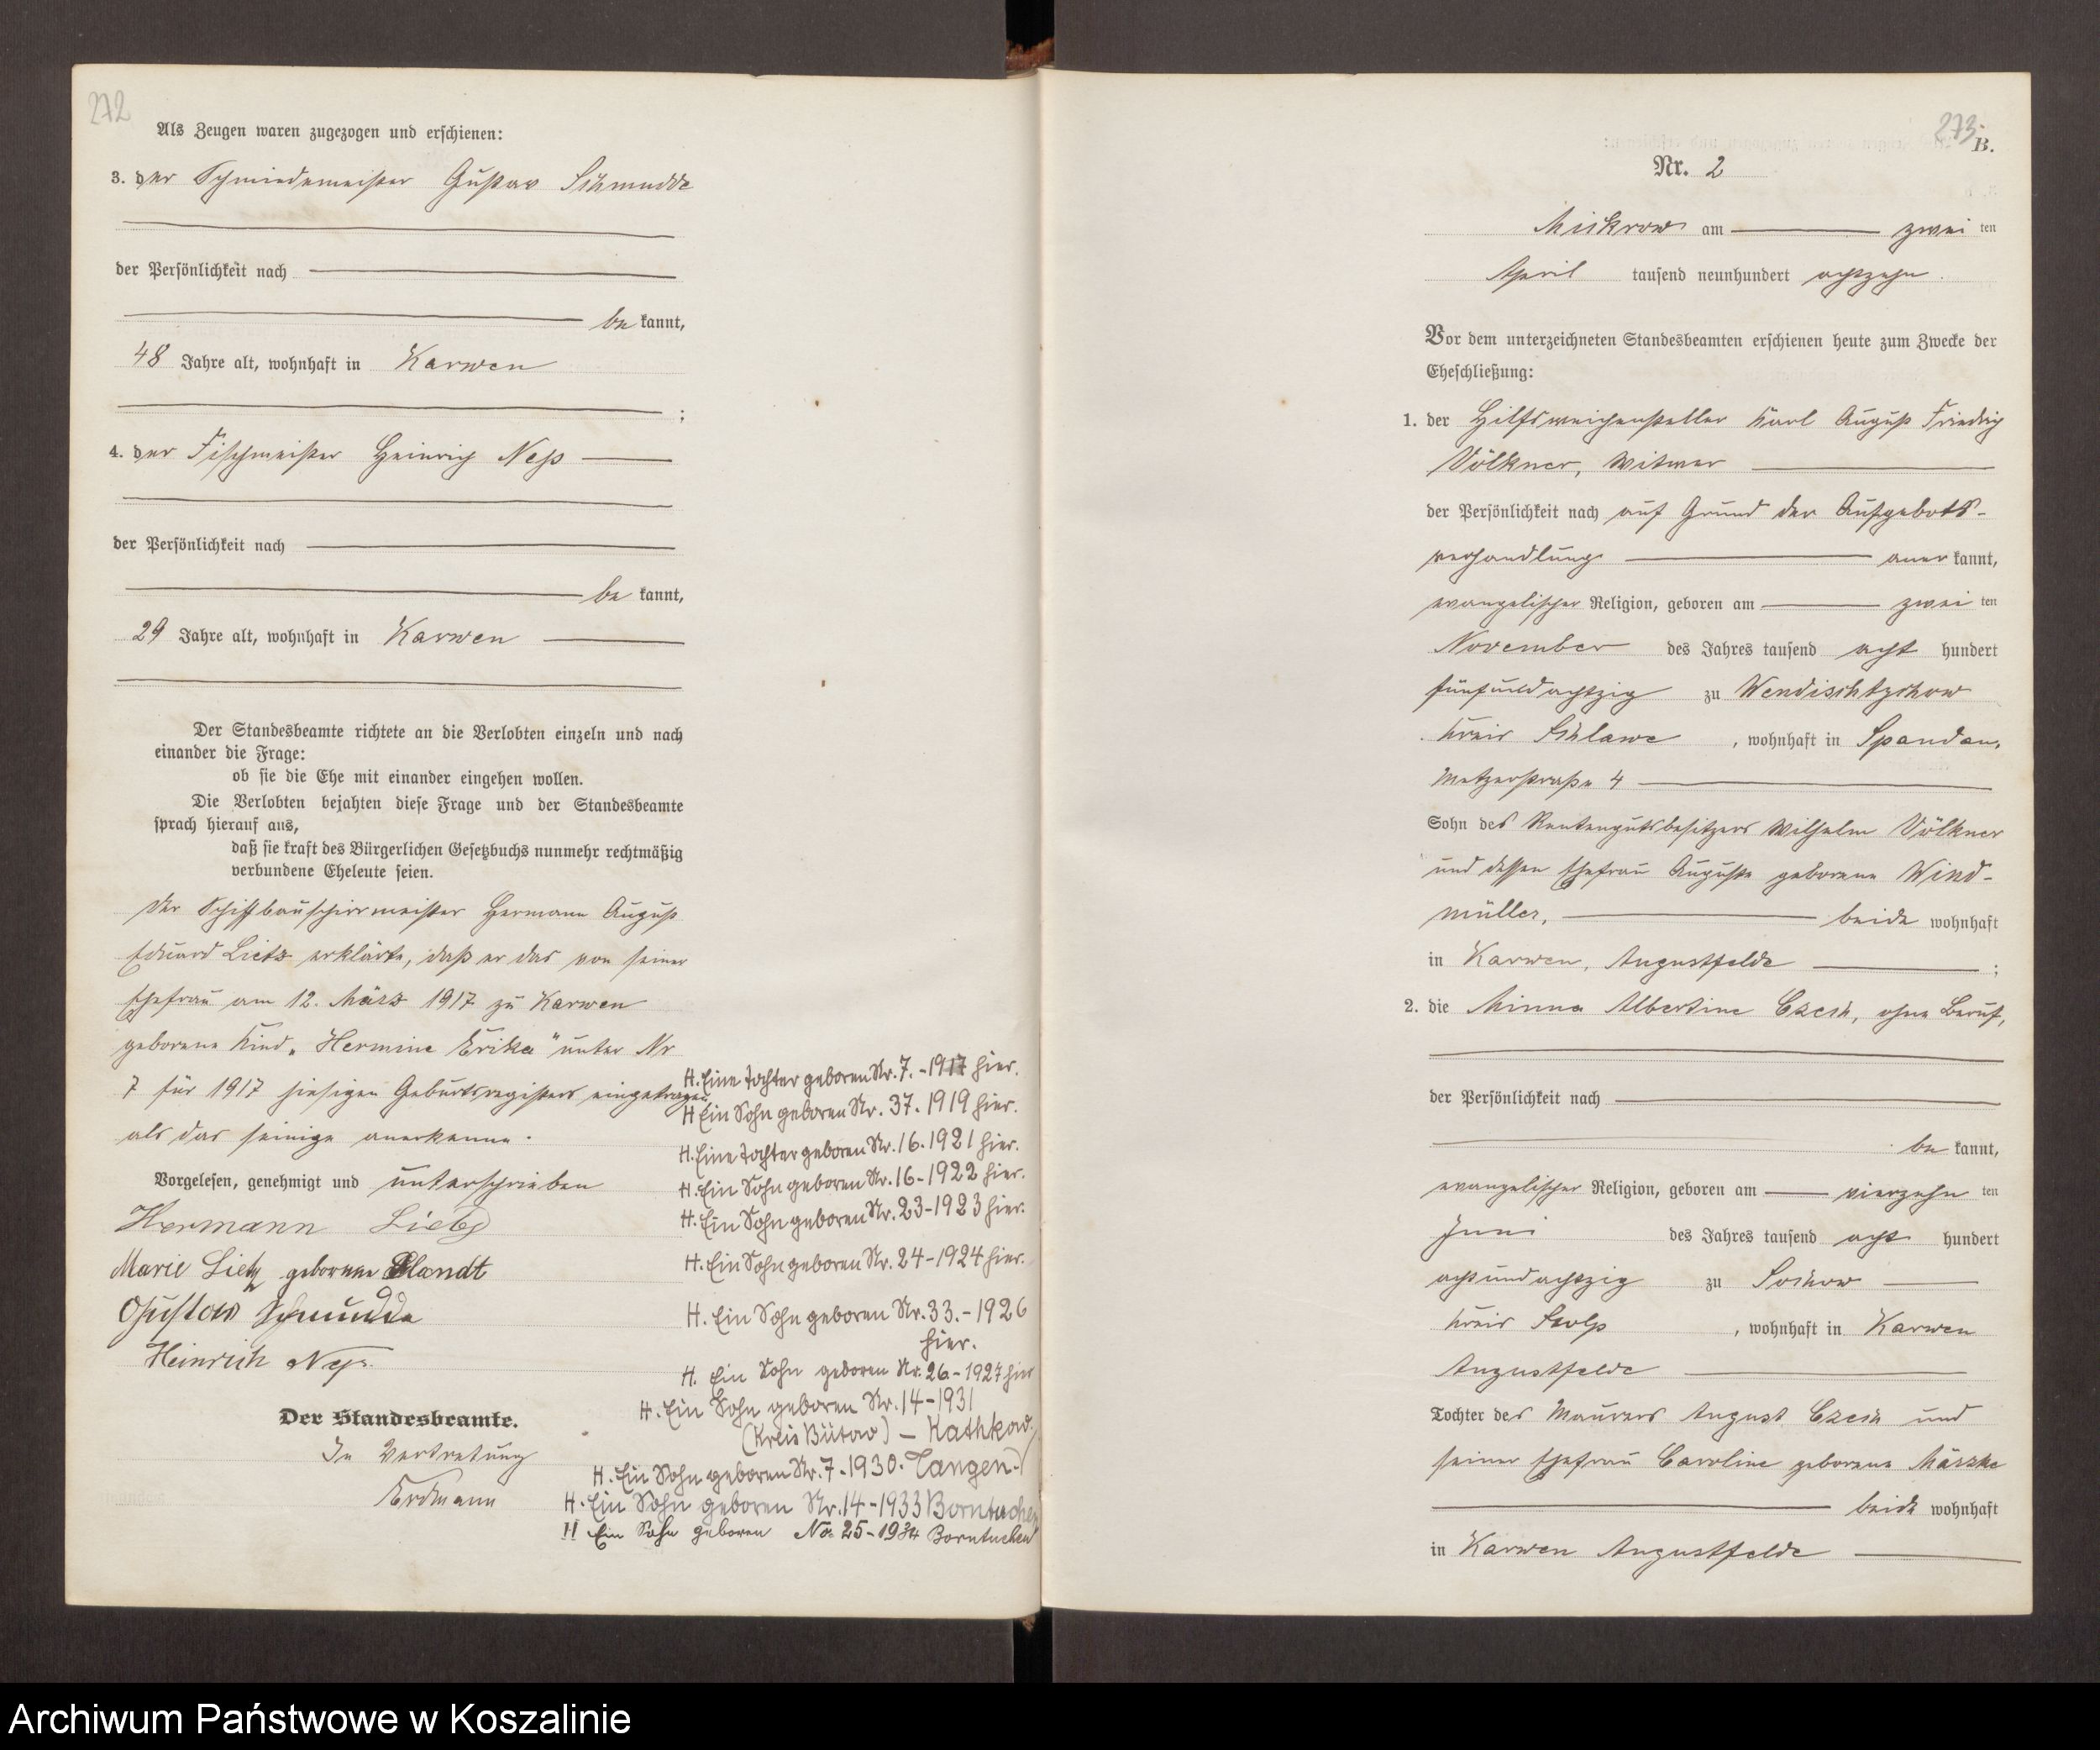 272
Als Zeugen waren zugezogen und erschienen:
3. der Schmiedemeister Gustav Schmudde
der Persönlichkeit nach
be kannt,
48 Jahre alt, wohnhaft in Karwen
;
4. der Fischmeister Heinrich Neß
der Persönlichkeit nach
be kannt,
29 Jahre alt, wohnhaft in Karwen
Der Standesbeamte richtete an die Verlobten einzeln und nach
einander die Frage:
ob sie die Ehe mit einander eingehen wollen.
Die Verlobten bejahten diese Frage und der Standesbeamte
sprach hierauf aus,
daß sie kraft des Bürgerlichen Gesetzbuchs nunmehr rechtmäßig
verbundene Eheleute seien.
Der Schiffbauschirrmeister Hermann August
Eduard Lietz erklärte, daß er das von seiner
Ehefrau am 12. März 1917 zu Karwen
geborene Kind „Hermine Erika" unter Nr
7 für 1917 hiesigen Geburtsregisters eingetragen
als das seinige anerkenne.
Vorgelesen, genehmigt und unterschrieben
Hermann Lietz
Marie Lietz geborene Blandt
Gustav Schmudde
Heinrich Neß.
Der Standesbeamte.
In Vertretung
Erdmann
H. Eine Tochter geboren Nr. 7. -1917 hier.
H Ein Sohn geboren Nr. 37. 1919 hier.
H. Eine Tochter geboren Nr. 16. 1921 hier.
H. Ein Sohn geboren Nr. 16-1922 hier.
H. Ein Sohn geboren Nr. 23-1923 hier.
H. Ein Sohn geboren Nr. 24-1924 hier.
H. Ein Sohn geboren Nr. 33.-1926
hier.
H. Ein Sohn geboren Nr. 26-1927 hier
H. Ein Sohn geboren Nr. 14-1931
(Kreis Bütow) – Kathkow.
H. Ein Sohn geboren Nr. 7-1930. Tangen.
H. Ein Sohn geboren Nr. 14-1933 Borntuchen
H Ein Sohn geboren No. 25-1934 Borntuchen
273.
B.
Nr. 2
Mickrow am zwei ten
April tausend neunhundert achtzehn.
Vor dem unterzeichneten Standesbeamten erschienen heute zum Zwecke der
Eheschließung:
1. der Hilfsweichensteller Karl August Friedrich
Völkner, Witwer
der Persönlichkeit nach auf Grund der Aufgebots-
verhandlung aner kannt,
evangelischer Religion, geboren am zwei ten
November des Jahres tausend acht hundert
fünfundachtzig zu Wendischtychow
Kreis Schlawe, wohnhaft in Spandau,
Metzerstraße 4
Sohn des Rentengutsbesitzers Wilhelm Völkner
und dessen Ehefrau Auguste geborene Wind-
müller, beide wohnhaft
in Karwen, Augustfelde ;
2. die Minna Albertine Czech, ohne Beruf,
der Persönlichkeit nach
be kannt,
evangelischer Religion, geboren am vierzehn ten
Juni des Jahres tausend acht hundert
achtundachtzig zu Sochow
Kreis Stolp, wohnhaft in Karwen
Augustfelde
Tochter des Maurers August Czech und
seiner Ehefrau Caroline geborene Märzke
beide wohnhaft
in Karwen Augustfelde
Archiwum Państwowe w Koszalinie